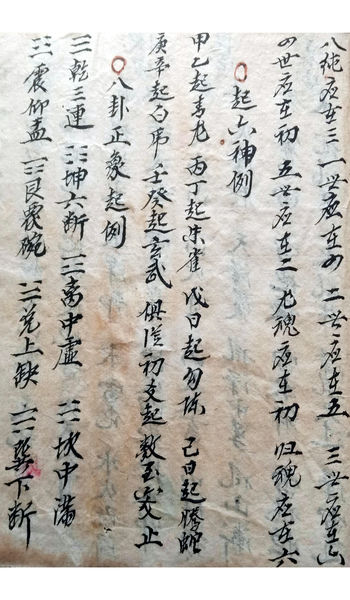 八纯应在三 一世应在四 二世应在五 三世应在六
四世应在初 五世应在二 尤魂应在初 归魂应在六
〇起六神例
甲乙起青龙 丙丁起朱雀 戊日起勾陈 己日起螣蛇
庚辛起白虎 壬癸起玄武 俱從初爻起数至爻止
〇八卦正象起例
☰乾三連 ☷坤六断 ☲离中虚 ☵坎中满
☳震仰盂 ☶艮覆碗 ☱兑上缺 ☴巽下断